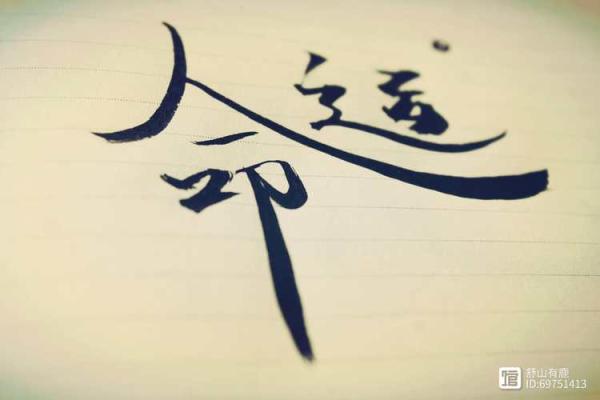 命运
舒山有鹿
ID:69751413